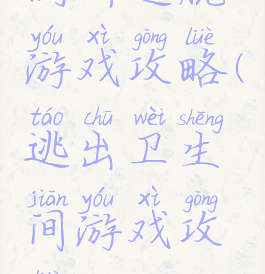 yóu xì gōng lüè
游戏攻略(
táo chū wèi shēng
逃出卫生
jiān yóu xì gōng
间游戏攻